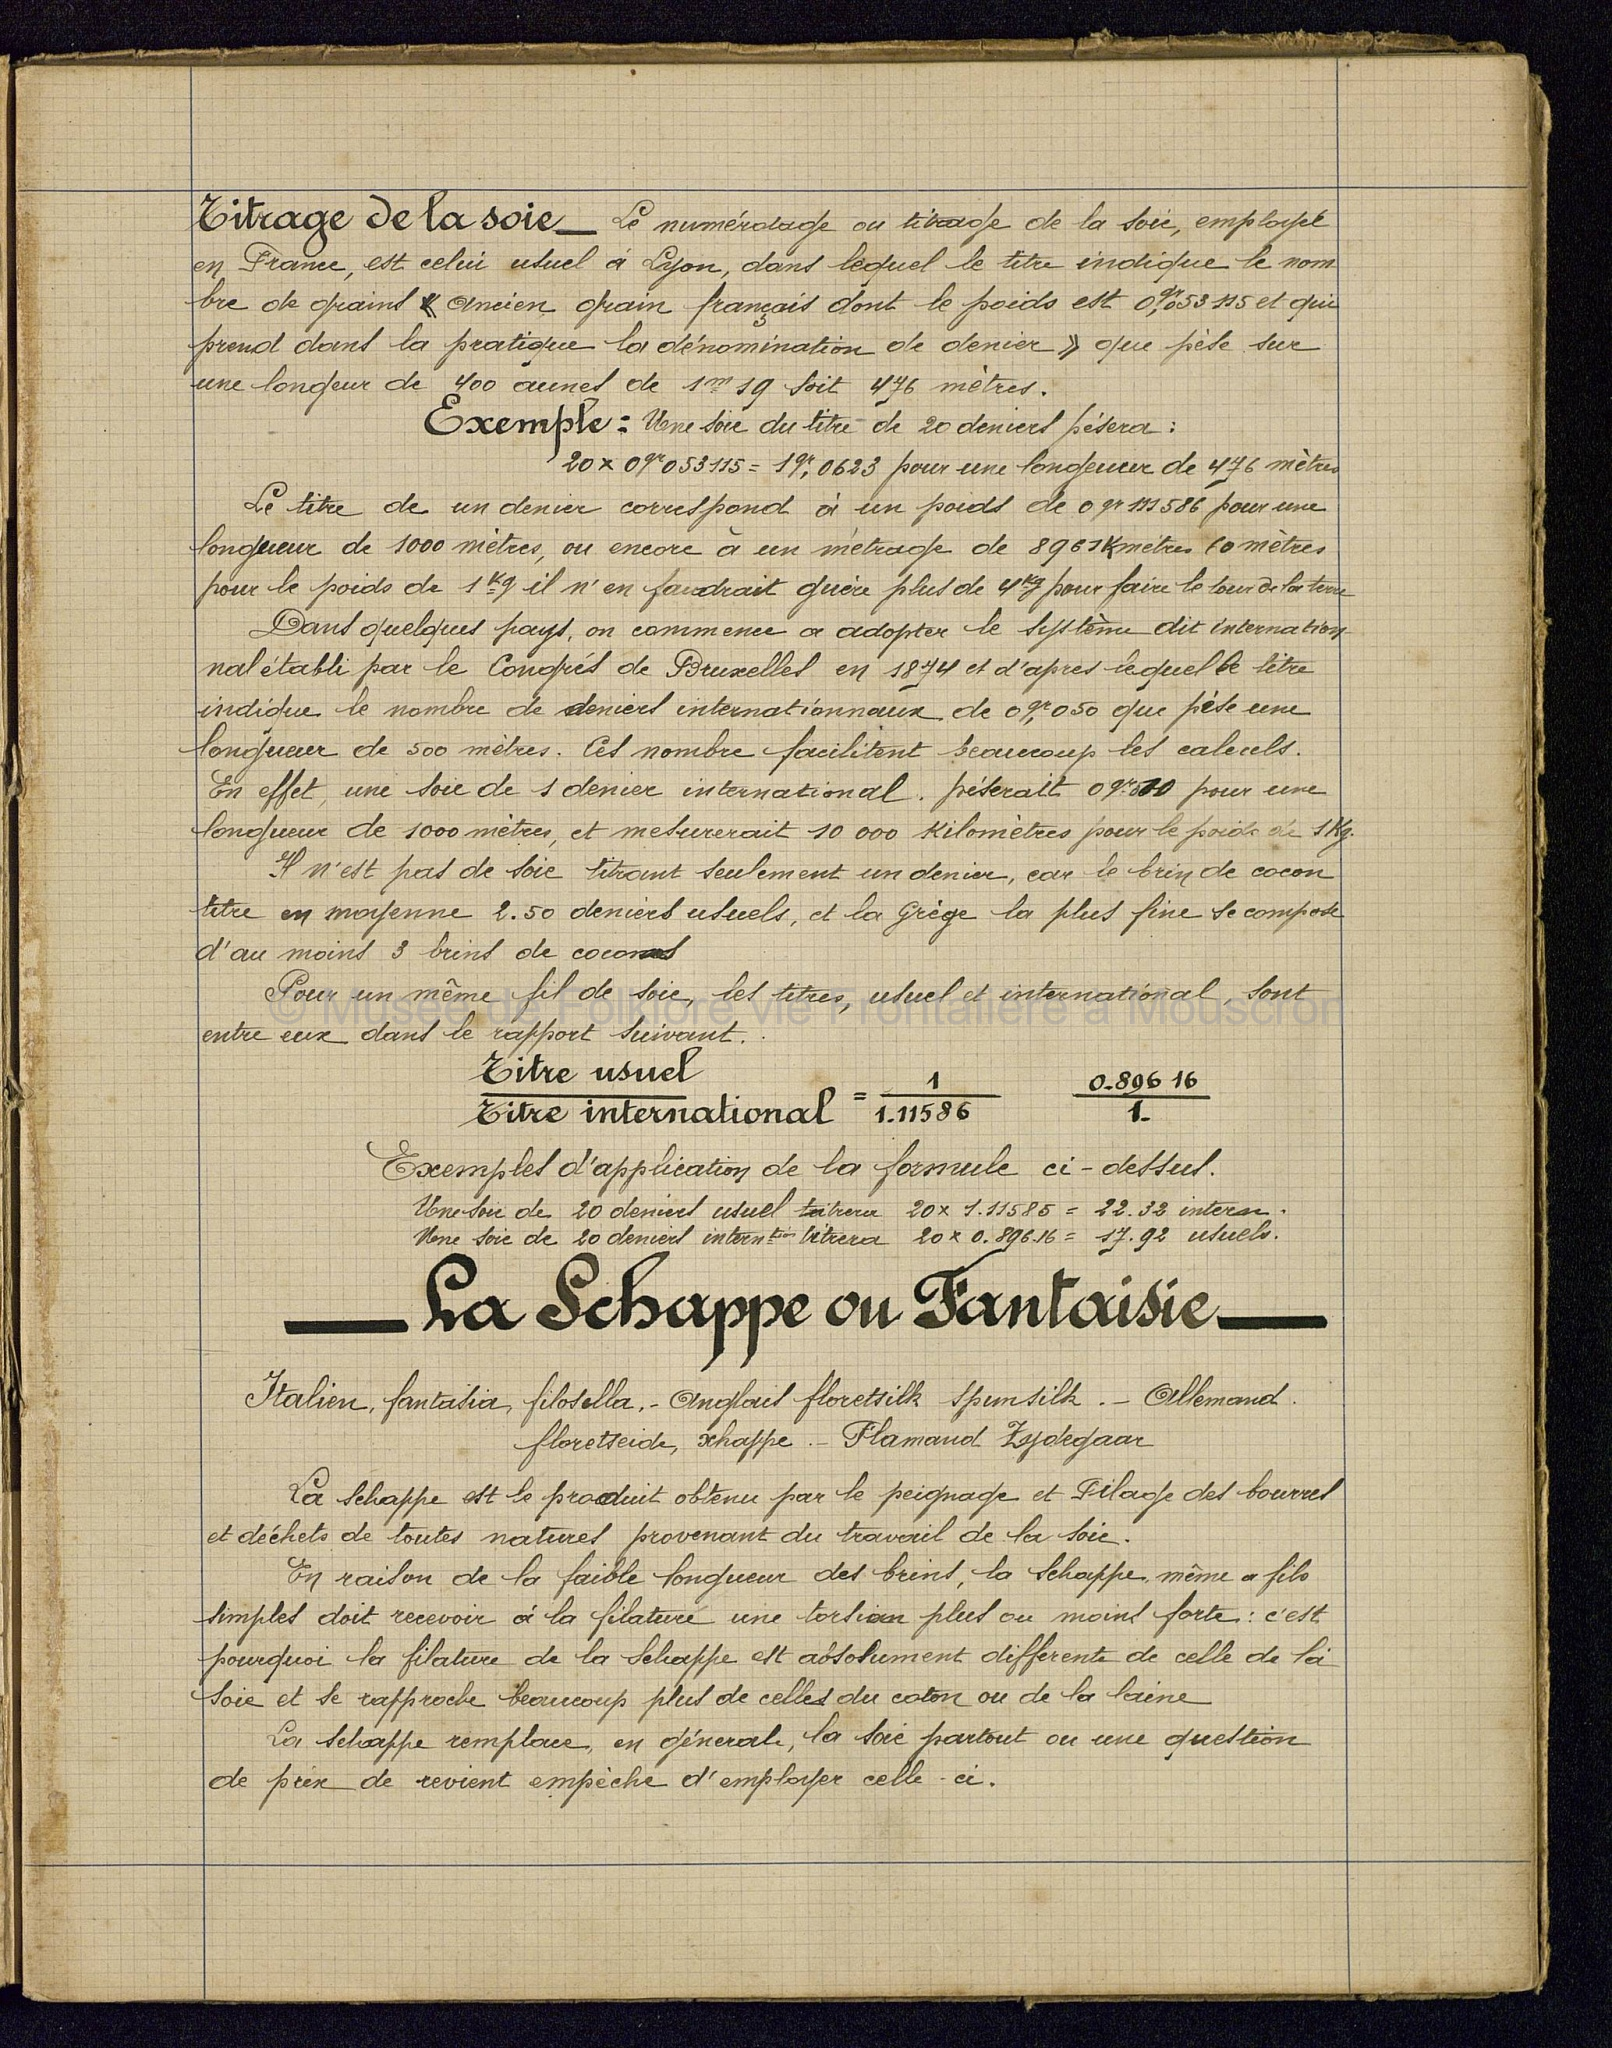 Titrage de la soie_ Le numérotage ou titrage de la soie, employé
en France, est celui usuel à Lyon, dans lequel le titre indique le nom
bre de grains « ancien grain français dont le poids est 0,gr053115 et qui
prend dans la pratique la dénomination de denier » que pèse sur
une longeur de 400 aunes de 1m19 soit 476 mètres.
Exemple = Une soie du titre de 20 deniers pésera :
20 x 0gr053115 = 1gr,0623 pour une longeueur de 476 mètres
Le titre de un denier correspond à un poids de 0 gr 111586 pour une
longueur de 1000 mètres, ou encore à un métrage de 8961Kmètres 60 mètres
pour le poids de 1Kg il n'en faudrait guère plus de 4Kg pour faire le tour de la terre
Dans quelques pays, on commence a adopter le système dit internation
nal établi par le Congrés de Bruxelles en 1874 et d'apres lequel le titre
indique le nombre de deniers internationnaux de 0gr,050 que pése une
longueur de 500 mètres. Ces nombre facilitent beaucoup les calculs.
En effet, une soie de 1 denier international. péserait 0gr. pour une
longueur de 1000 mètres, et mesurerait 10 000 Kilomètres pour le poids de 1Kg.
Il n'est pas de soie titrant seulement un denier, car le brin de cocon
titre en moyenne 2.50 deniers usuels, et la Grège la plus fine se compose
d'au moins 3 brins de cocons
Pour un même fil de soie, les titres, usuel et international, sont
© Musée de Folklore vie Frontalière à Mouscron
entre eux dans le rapport suivant.
Titre usuel 1 0.896 16
Titre international = 1.11586 1.
Exemples d'application de la formule ci-dessus.
Une soie de 20 deniers usuel titrera 20 x 1.11585 = 22.32 intern.
Une soie de 20 deniers interntion titrera 20 x 0.896.16 = 17.92 usuels.
La Schappe ou Fantaisie
Italien, fantasia, filosella,.- Anglais floretsilk spunsilk .- Allemand.
floretseide, schappe .- Flamand Zydegaar
La schappe est le produit obtenu par le peignage et Filage des bourres
et déchets de toutes natures provenant du travail de la soie.
En raison de la faible longueur des brins, la schappe même a fils
simples doit recevoir à la filature une torsion plus ou moins forte : c'est
pourquoi la filature de la schappe est absolument differente de celle de la
soie et se rapproche beaucoup plus de celles du coton ou de la laine
La schappe remplace, en général, la soie partout ou une question
de prix de revient empèche d'employer celle-ci.